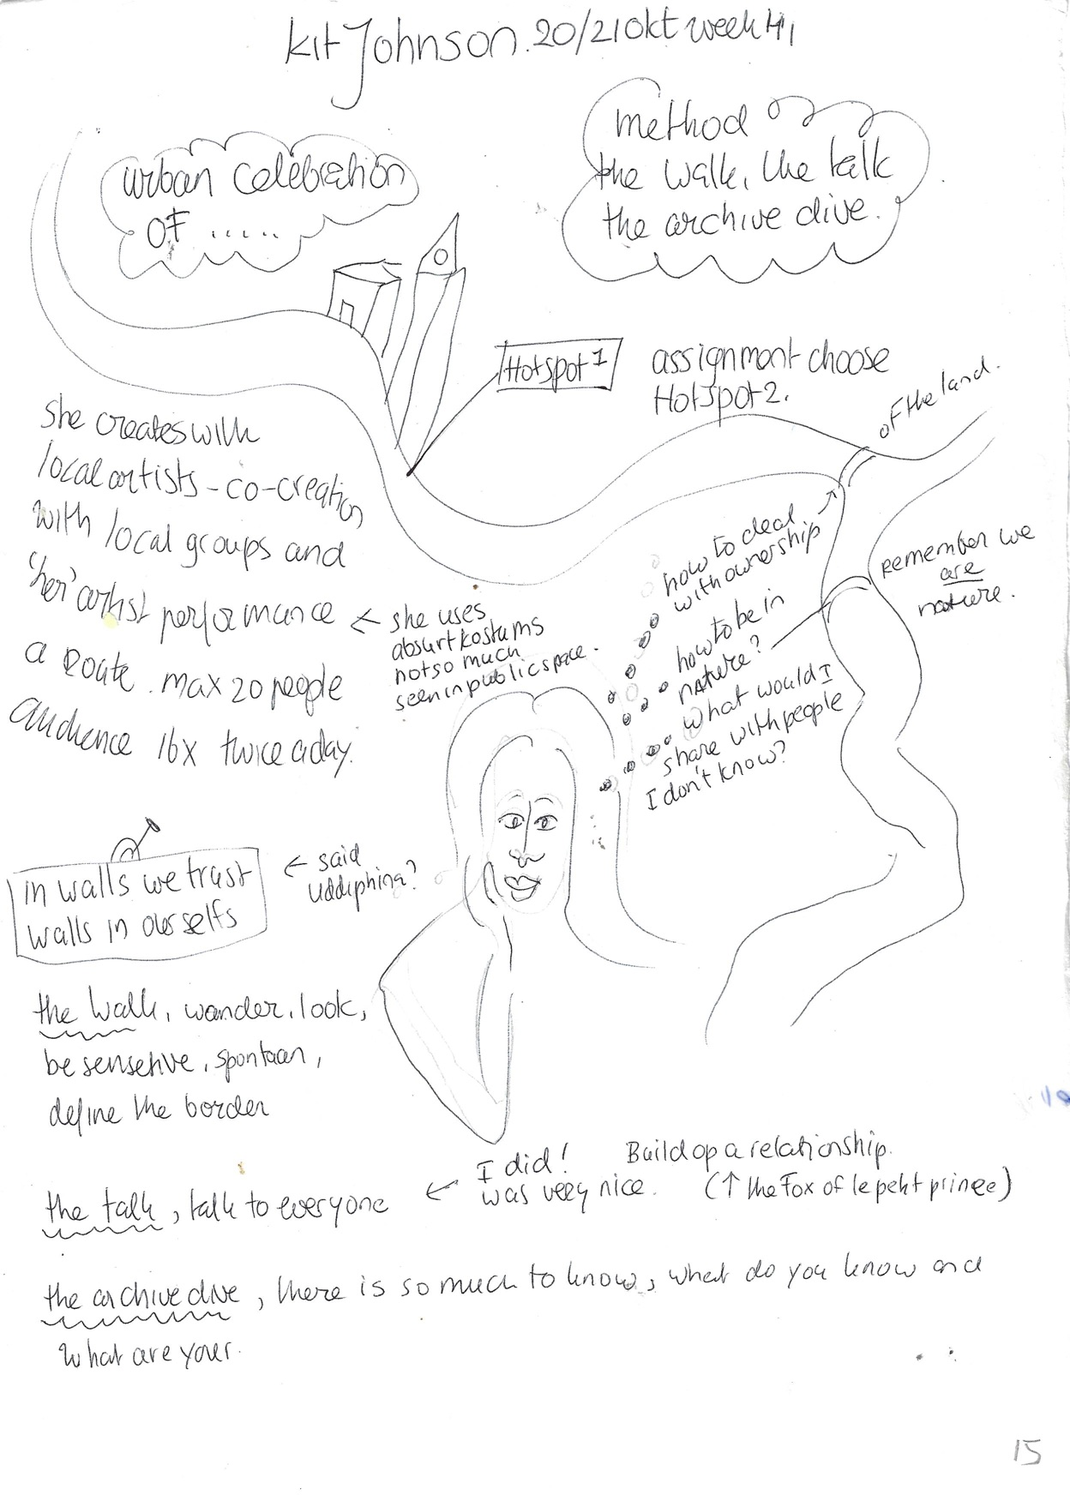 Kit Johnson. 20/21 okt week 41
urban celebration
OF .....
method
the walk, the talk
the archive dive.
Hotspot 1
assignment choose
Hotspot 2.
of the land.
she creates with
local artists - co-creation
with local groups and
'her' artist performance
a Route. max 20 people
audience 16x twice a day.
← she uses
absurt kostums
not so much
seen in public space.
how to deal
with ownership
how to be in
nature?
what would I
share with people
I don't know?
Remember we
are
nature.
in walls we trust
walls in our selfs
← said
Uddiphina?
the Walk, wander, look,
be sensetive, spontaan,
define the border
the talk, talk to everyone
← I did!
was very nice.
Build op a relationship.
(↑ the Fox of le petit prince)
the archive dive, there is so much to know, what do you know and
What are your.
15